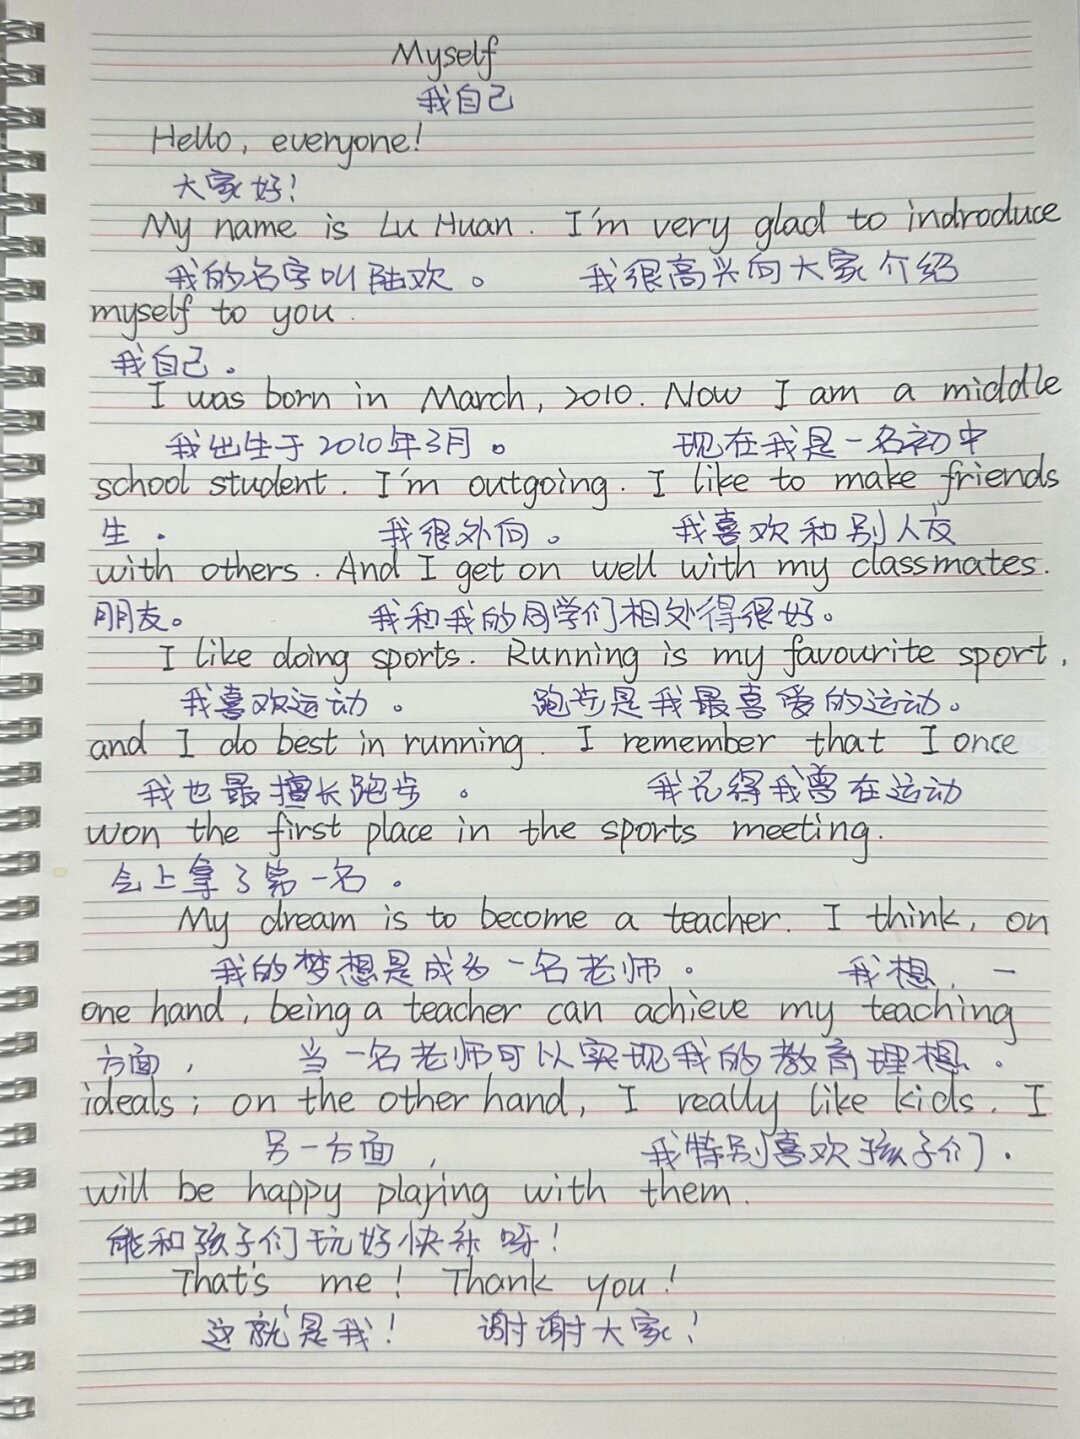 Myself
我自己
Hello, everyone!
大家好!
My name is Lu Huan. I'm very glad to indroduce
我的名字叫陆欢。 我很高兴向大家介绍
myself to you.
我自己。
I was born in March, 2010. Now I am a middle
我出生于2010年3月。 现在我是一名初中
school student. I'm outgoing. I like to make friends
生。 我很外向。 我喜欢和别人交
with others. And I get on well with my classmates.
朋友。 我和我的同学们相处得很好。
I like doing sports. Running is my favourite sport,
我喜欢运动。 跑步是我最喜爱的运动。
and I do best in running. I remember that I once
我也最擅长跑步。 我记得我曾在运动
won the first place in the sports meeting.
会上拿了第一名。
My dream is to become a teacher. I think, on
我的梦想是成为一名老师。 我想,一
one hand, being a teacher can achieve my teaching
方面, 当一名老师可以实现我的教育理想.
ideals; on the other hand, I really like kids. I
另一方面, 我特别喜欢孩子们.
will be happy playing with them.
能和孩子们玩好快乐呀!
That's me! Thank you!
这就是我! 谢谢大家!